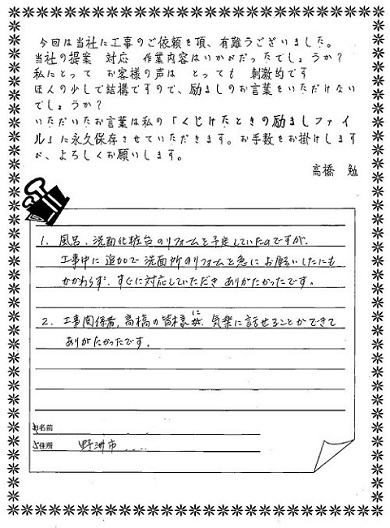 今回は当社に工事のご依頼を頂、有難うございました。
当社の提案 対応 作業内容はいかがだったでしょうか?
私にとって お客様の声は とっても 刺激的です
ほんの少しで結構ですので、励ましのお言葉をいただけない
でしょうか?
いただいたお言葉は私の「くじけたときの励ましファイ
ル」に永久保存させていただきます。お手数をお掛けします
が、よろしくお願いします。
高橋 勉
1. 風呂、洗面化粧台のリフォームを予定していたのですが、
工事中に追加で洗面所のリフォームを急にお願いしたにも
かかわらず、すぐに対応していただきありがたかったです。
2. 工事関係者、高橋の皆様に、気楽に話せることができて
ありがたかったです。
お名前
ご住所 野洲市